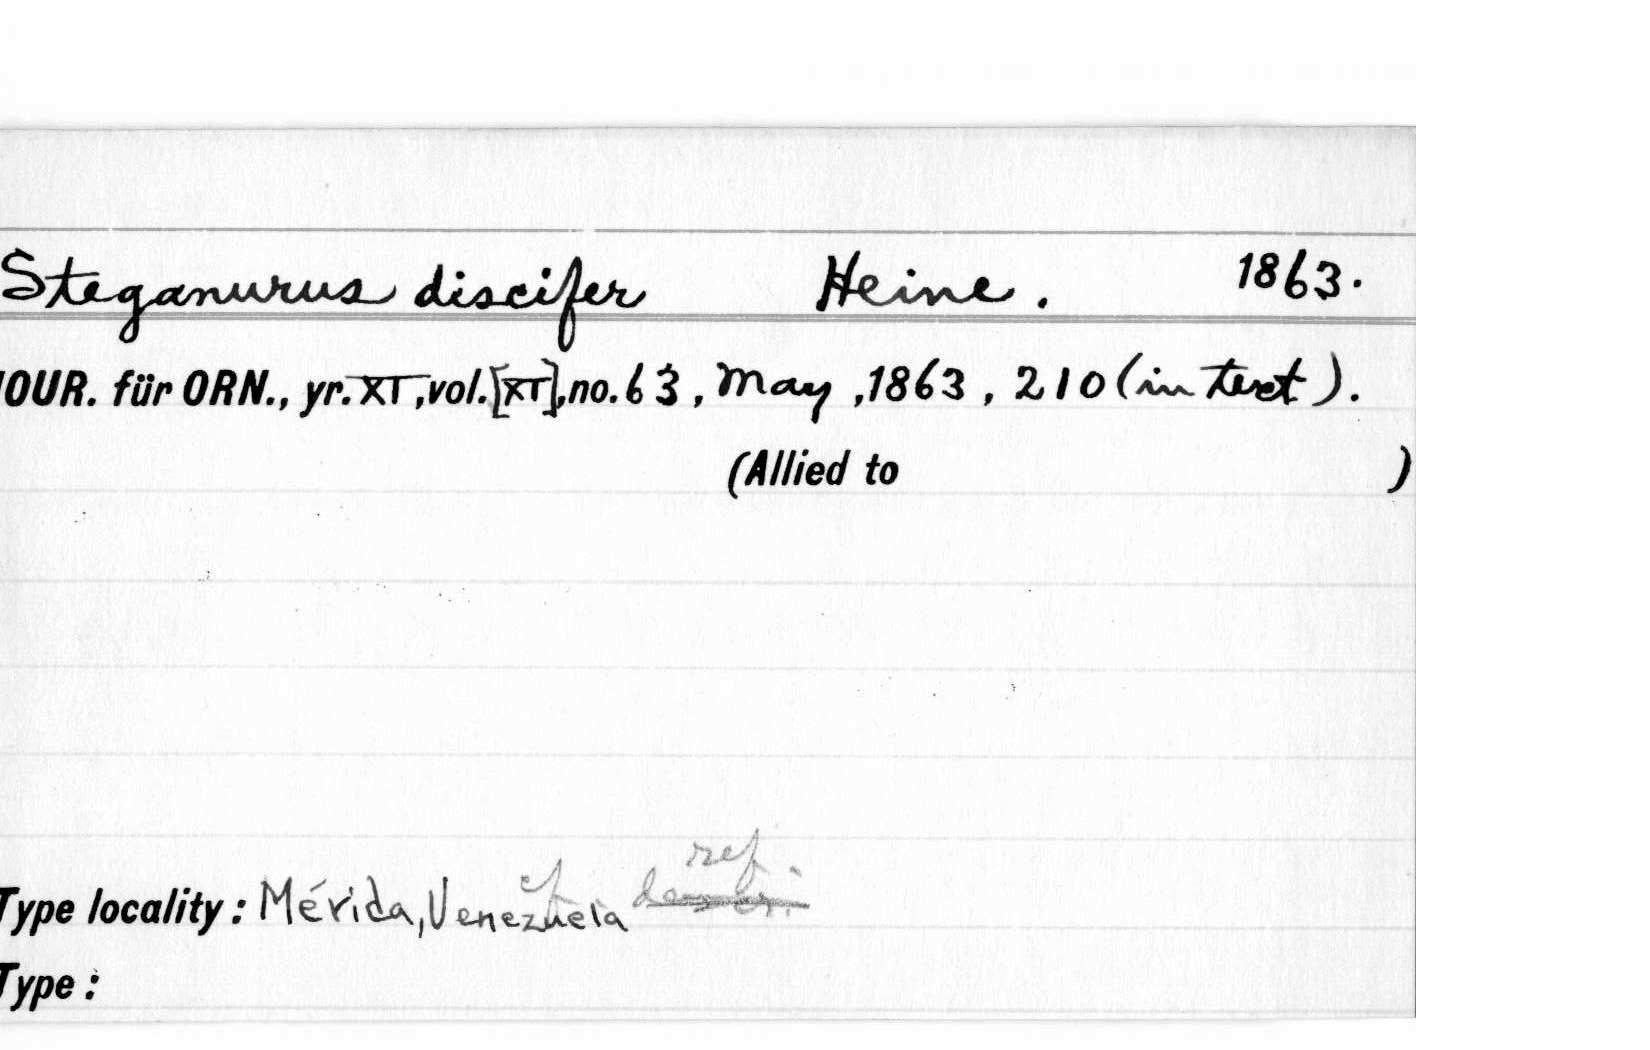 Steganurus discifer Heine. 1863.
JOUR. für ORN., yr. XI, vol. [XI], no. 63, May, 1863, 210 (in text).
(Allied to )
cf ref.
Type locality: Mérida, Venezuela
Type: